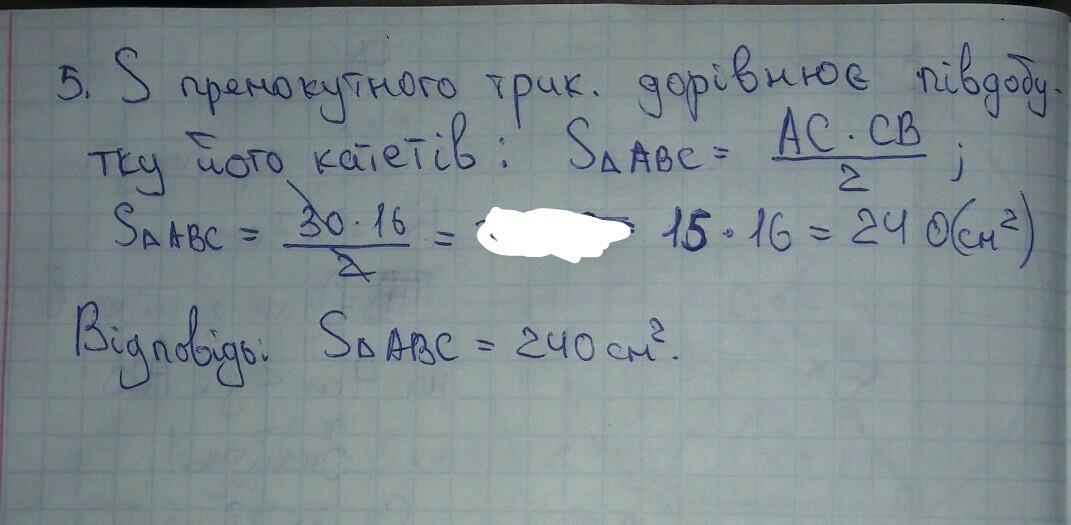 5. S премокутного трик. дорівнює півдобу-
тку його катетів: S△ABC = AC · CB / 2 ;
S△ABC = 30 · 16 / 2 = 15 · 16 = 240(см²)
Відповідь: S△ABC = 240 см².